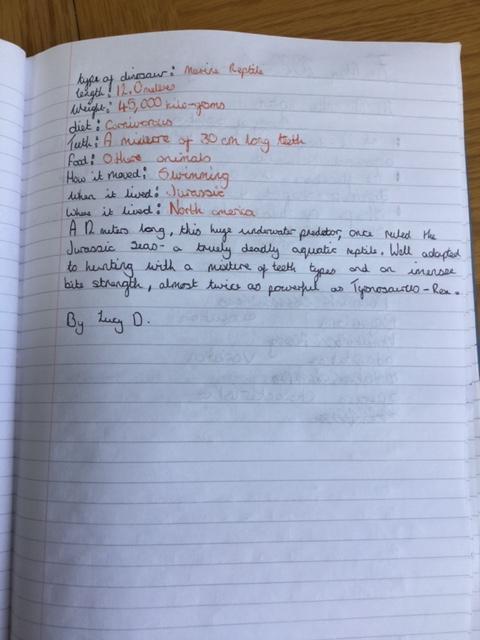 type of dinosaur: Marine Reptile
length: 12.0 meters
Weight: 45,000 kilo-grams
diet: Carnivorous
Teeth: A mixture of 30 cm long teeth
Food: Other animals
How it moved: Swimming
When it lived: Jurassic
Where it lived: North america
A 12 miters long, this huge underwater predator, once ruled the
Jurassic Seas- a truely deadly aquatic reptile. Well adapted
to hunting with a mixture of teeth types and an imensee
bite strength, almost twice as powerful as Tyronosaurus-Rex.
By Lucy D.